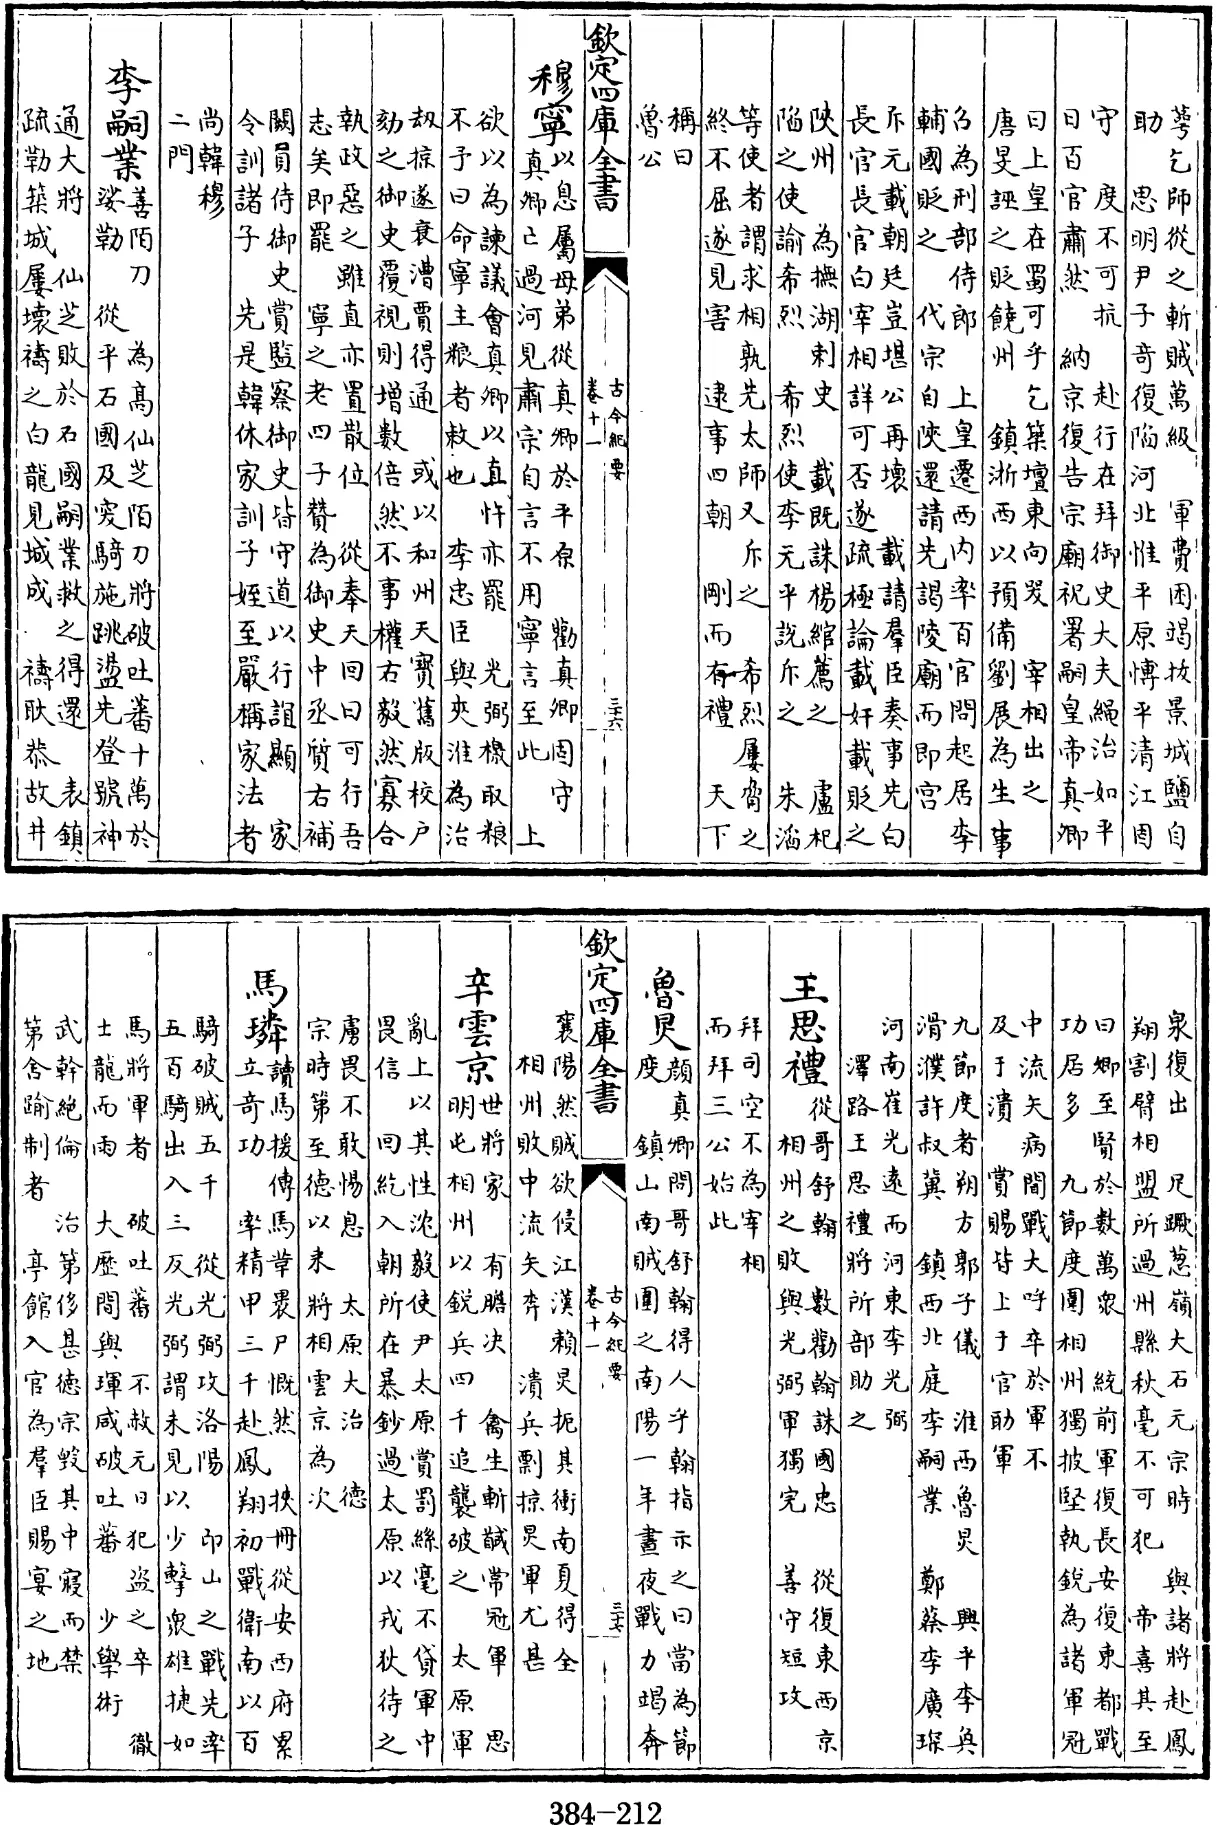 蕚乞師從之斬賊萬級　軍費困竭扳景城鹽自
助　思明尹子奇復陷河北惟平原博平清江固
守　度不可抗　赴行在拜御史大夫繩治如平
日百官肅然　納京復告宗廟祝署嗣皇帝真卿
曰上皇在蜀可乎乞築壇東向哭　宰相出之
唐旻誣之貶饒州　鎮淅西以預備劉展為生事
召為刑部侍郎　上皇遷西内率百官問起居李
輔國貶之　代宗自陜還請先謁陵廟而即宫
斥元載朝廷豈堪公再壞　載請羣臣奏事先白
長官長官白宰相詳可否遂疏極論載奸載貶之
陜州　為撫湖刺史　載既誅楊綰薦之　盧杞
陷之使諭希烈　希烈使李元平說斥之　朱滔
等使者謂求相孰先太師又斥之　希烈屢脅之
終不屈遂見害　逮事四朝　剛而有禮　天下
稱曰
魯公
欽定四庫全書
古今紀要
卷十一
三十六
穆寧
以息屬母弟從真卿於平原　勸真卿固守
真卿已過河見肅宗自言不用寧言至此　上
欲以為諫議會真卿以直忤亦罷　光弼檄取粮
不予曰命寧主粮者敕也　李忠臣與夾淮為治
刼掠遂衰漕賈得通　或以和州天寶舊版校户
劾之御史覆視則增數倍然不事權右毅然寡合
執政惡之雖直亦置散位　從奉天回曰可行吾
志矣即罷　寧之老四子贊為御史中丞質右補
闕員侍御史賞監察御史皆守道以行誼顯　家
令訓諸子　先是韓休家訓子姪至嚴稱家法者
尚韓穆
二門
李嗣業
善陌刀　為高仙芝陌刀將破吐蕃十萬於
娑勒　從平石國及突騎施跳盪先登號神
通大將　仙芝敗於石國嗣業救之得還　表鎮
疏勒築城屢壞禱之白龍見城成　禱耿恭故井
泉復出　尺蹶葱嶺大石元宗時　與諸將赴鳳
翔割臂相盟所過州縣秋毫不可犯　帝喜其至
曰卿至賢於數萬衆　統前軍復長安復東都戰
功居多　九節度圍相州獨披堅執銳為諸軍冠
中流矢病間戰大呼卒於軍不
及于潰　賞賜皆上于官助軍
九節度者朔方郭子儀　淮西魯炅　興平李奐
滑濮許叔冀　鎮西北庭李嗣業　鄭蔡李廣琛
河南崔光遠而河東李光弼
澤路王思禮將所部助之
王思禮
從哥舒翰　數勸翰誅國忠　從復東西京
相州之敗與光弼軍獨完　善守短攻
拜司空不為宰相
而拜三公始此
魯炅
顔真卿問哥舒翰得人乎翰指示之曰當為節
度　鎮山南賊圍之南陽一年晝夜戰力竭奔
襄陽然賊欲侵江漢賴炅扼其衝南夏得全
相州敗中流矢奔　潰兵剽掠炅軍尤甚
欽定四庫全書
古今紀要
卷十一
三十七
辛雲京
世將家　有膽决　禽生斬馘常冠軍　思
明屯相州以銳兵四千追襲破之　太原軍
亂上以其性沈毅使尹太原賞罰絲毫不貸軍中
畏信　回紇入朝所在暴鈔過太原以戎狄待之
虜畏不敢惕息　太原大治　德
宗時第至德以来將相雲京為次
馬璘
讀馬援傳馬革裹尸慨然　挾冊從安西府累
立奇功　率精甲三千赴鳳翔初戰衛南以百
騎破賊五千　從光弼攻洛陽　卬山之戰先率
五百騎出入三反光弼謂未見以少擊衆雄捷如
馬將軍者　破吐蕃　不赦元日犯盗之卒　徹
士龍而雨　大歷間與琿咸破吐蕃　少學術
武幹絶倫　治第侈甚德宗毁其中寢而禁
第舍踰制者　亭館入官為羣臣賜宴之地
384—212